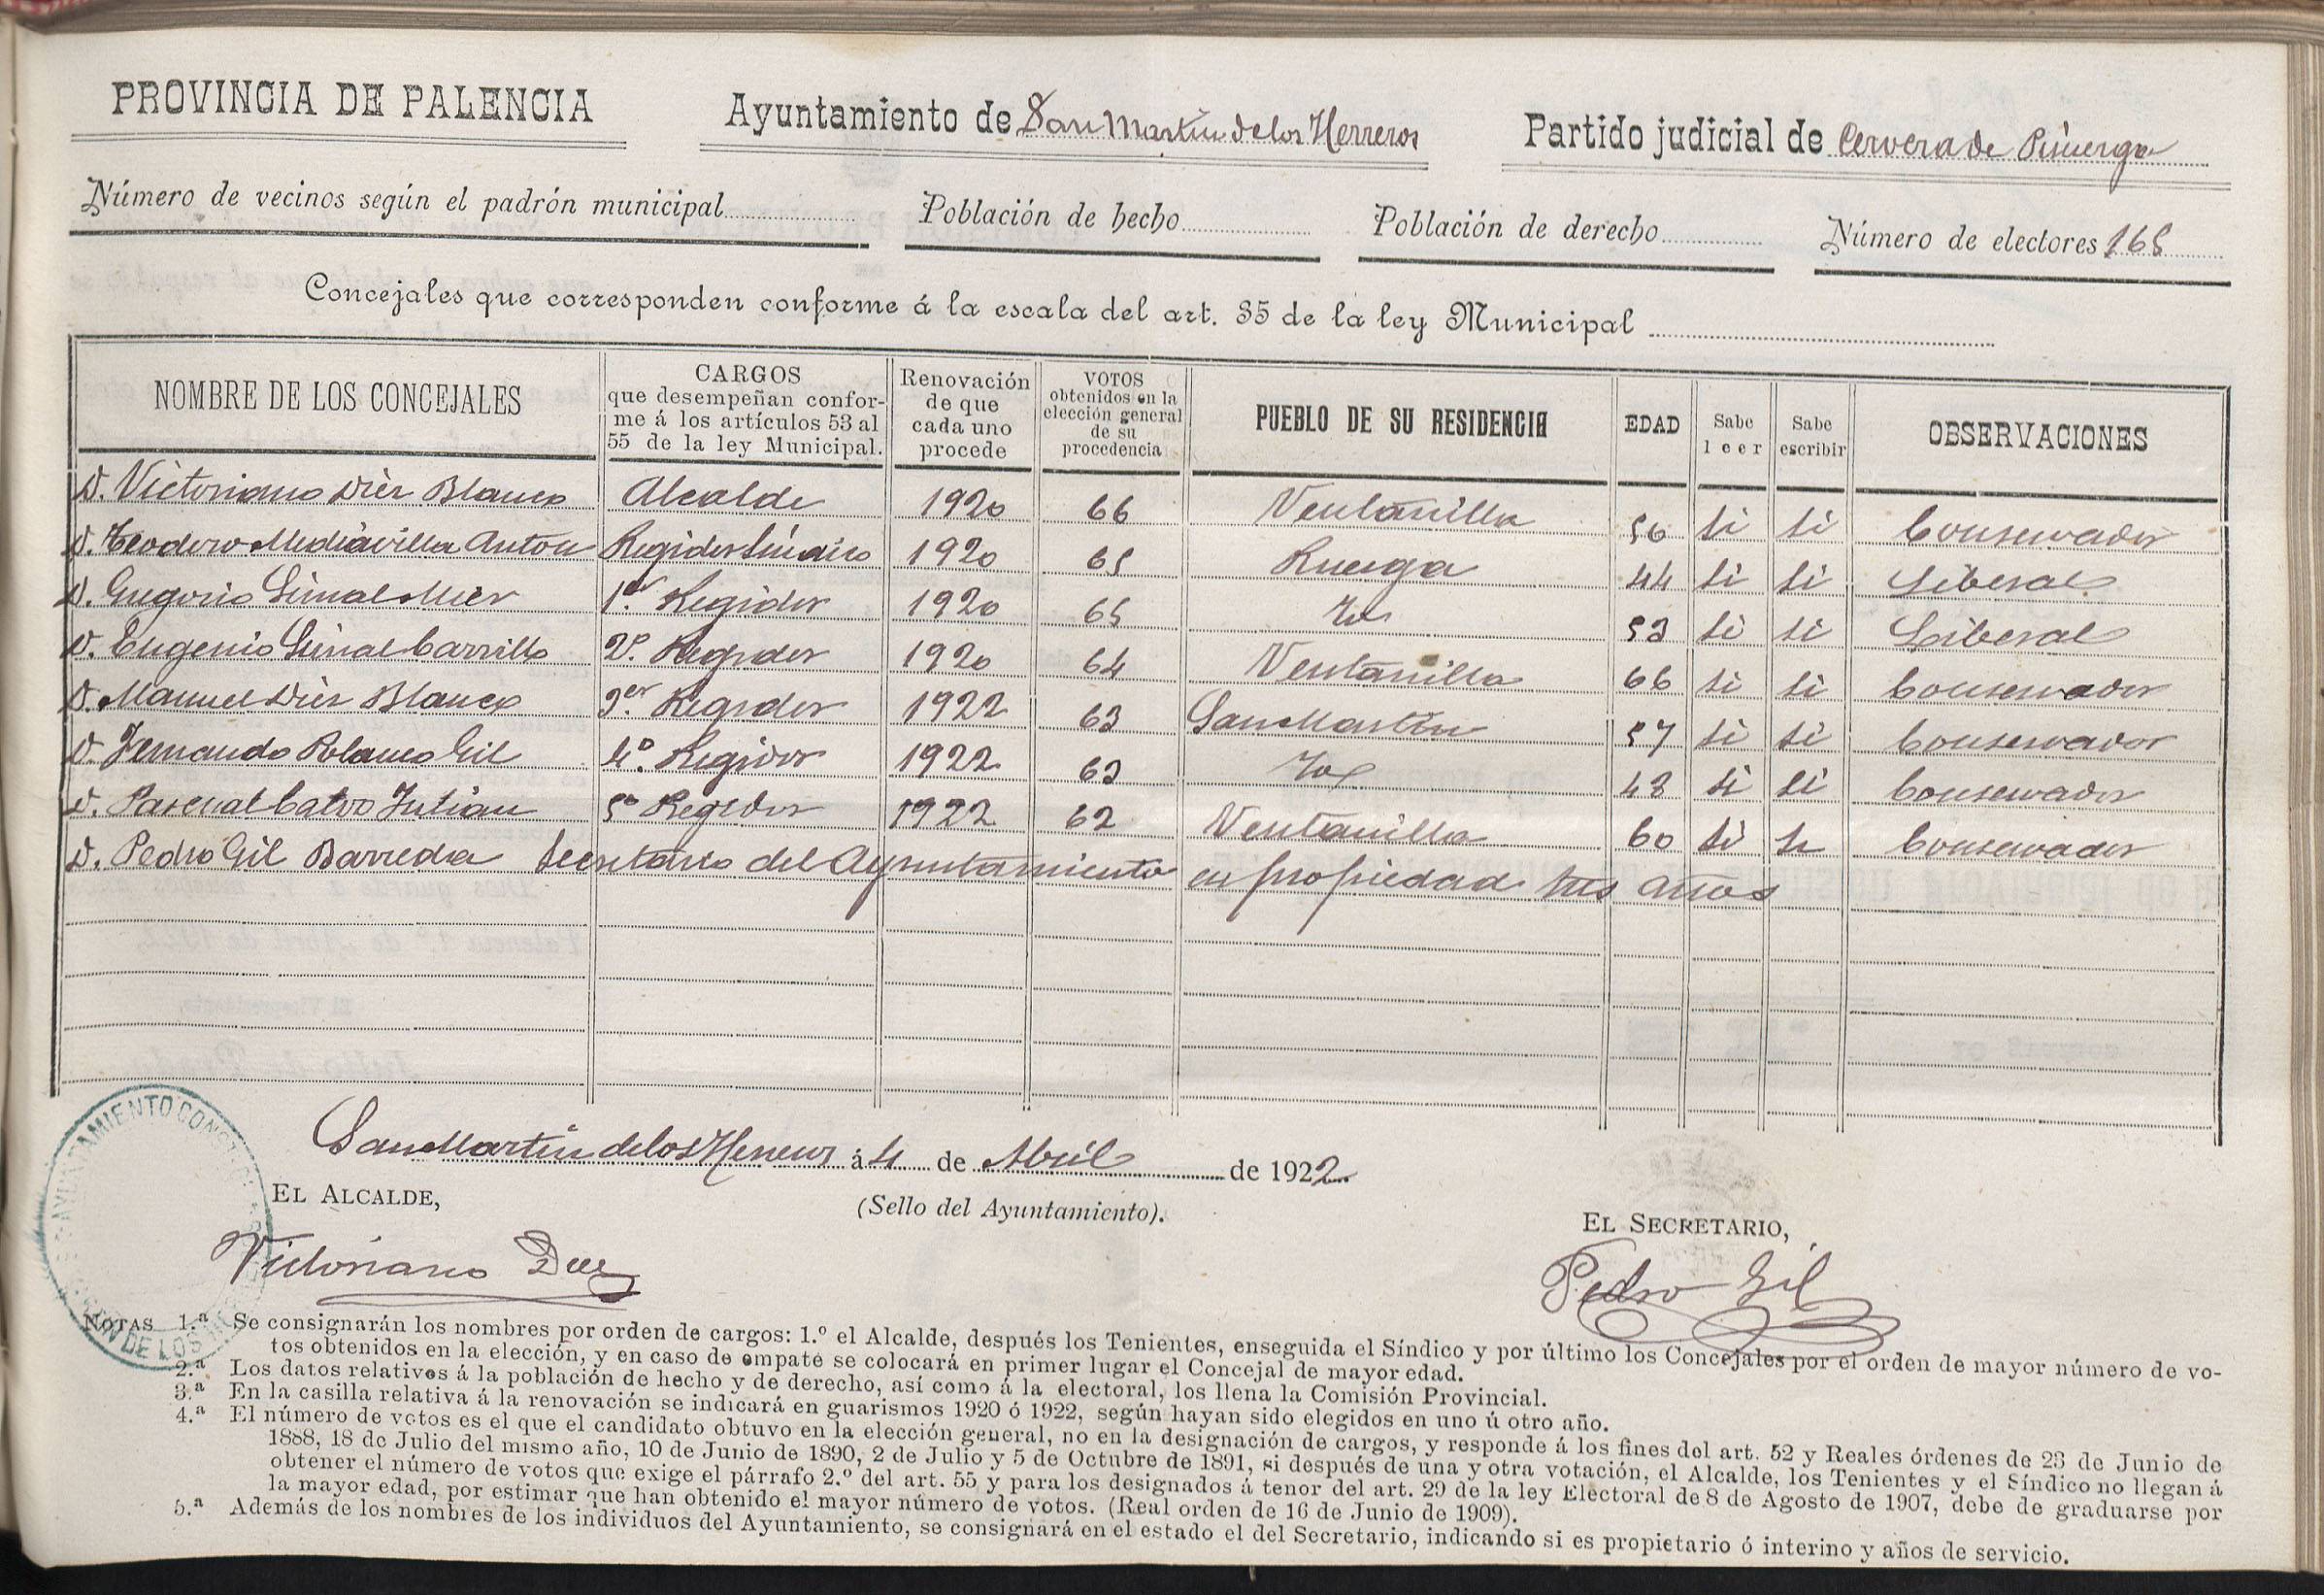 PROVINCIA DE PALENCIA
Ayuntamiento de San Martin de los Herreros
Partido judicial de Cervera de Pisuerga
Número de vecinos según el padrón municipal
Población de hecho
Población de derecho
Número de electores 165
Concejales que corresponden conforme á la escala del art. 35 de la ley Municipal
NOMBRE DE LOS CONCEJALES
CARGOS
que desempeñan confor-
me á los artículos 53 al
55 de la ley Municipal.
Renovación
de que
cada uno
procede
VOTOS
obtenidos en la
elección general
de su
procedencia
PUEBLO DE SU RESIDENCIA
EDAD
Sabe
leer
Sabe
escribir
OBSERVACIONES
D. Victoriano Diez Blanco Alcalde 1920 66 Ventanilla 56 si si Conservador
D. Teodoro Mediavilla Anton Regidor Sindico 1920 65 Ruesga 44 si si Liberal
D. Gregorio Simal Mier 1er Regidor 1920 65 53 si si Liberal
D. Eugenio Simal Carrillo 2º Regidor 1920 64 Ventanilla 66 si si Conservador
D. Manuel Diez Blanco 3er Regidor 1922 63 San Martin 57 si si Conservador
D. Fernando Polanco Gil 4º Regidor 1922 63 48 si si Conservador
D. Pascual Calvo Julian 5º Regidor 1922 62 Ventanilla 60 si si Conservador
D. Pedro Gil Barreda Secretario del Ayuntamiento en propiedad tres años
San Martin de los Herreros á 4 de Abril de 1922.
EL ALCALDE,
(Sello del Ayuntamiento).
EL SECRETARIO,
Victoriano Diez
Pedro Gil
NOTAS 1.ª Se consignarán los nombres por orden de cargos: 1.º el Alcalde, después los Tenientes, enseguida el Síndico y por último los Concejales por el orden de mayor número de vo-
tos obtenidos en la elección, y en caso de empate se colocará en primer lugar el Concejal de mayor edad.
2.ª Los datos relativos á la población de hecho y de derecho, así como á la electoral, los llena la Comisión Provincial.
3.ª En la casilla relativa á la renovación se indicará en guarismos 1920 ó 1922, según hayan sido elegidos en uno ú otro año.
4.ª El número de votos es el que el candidato obtuvo en la elección general, no en la designación de cargos, y responde á los fines del art. 52 y Reales órdenes de 23 de Junio de
1888, 18 de Julio del mismo año, 10 de Junio de 1890, 2 de Julio y 5 de Octubre de 1891, si después de una y otra votación, el Alcalde, los Tenientes y el Síndico no llegan á
obtener el número de votos que exige el párrafo 2.º del art. 55 y para los designados á tenor del art. 29 de la ley Electoral de 8 de Agosto de 1907, debe de graduarse por
la mayor edad, por estimar que han obtenido el mayor número de votos. (Real orden de 16 de Junio de 1909).
5.ª Además de los nombres de los individuos del Ayuntamiento, se consignará en el estado el del Secretario, indicando si es propietario ó interino y años de servicio.